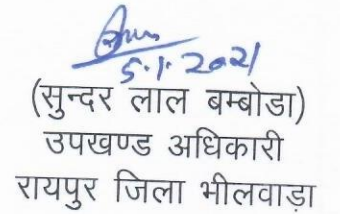 5.1.2021
(सुन्दर लाल बम्बोडा)
उपखण्ड अधिकारी
रायपुर जिला भीलवाडा